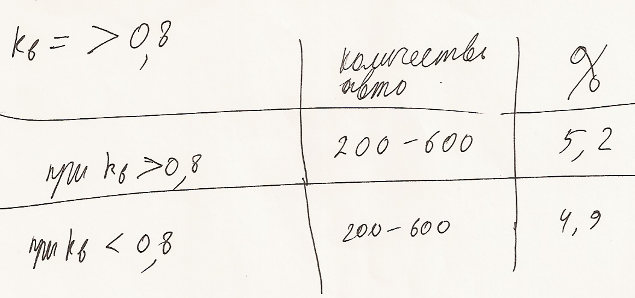 kв = > 0,8
количество авто
%
при kв > 0,8
200 - 600
5, 2
при kв < 0,8
200 - 600
4, 9